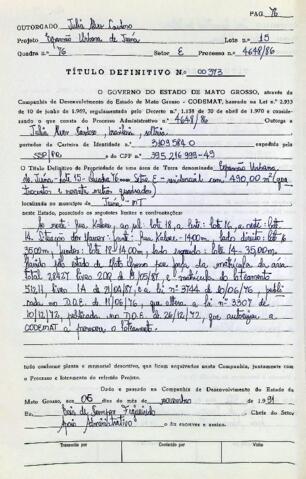 PAG. 76
OUTORGADO Júlia Alves Cardoso
Projeto Expansão Urbana de Juína Lote n.º 15
Quadra n.º 76 Setor E Processo n.º 4648/86
TÍTULO DEFINITIVO N.º 00373
O GOVERNO DO ESTADO DE MATO GROSSO, através da
Companhia de Desenvolvimento do Estado de Mato Grosso - CODEMAT, baseado na Lei n.º 2.933
de 10 de junho de 1969, regulamentada pelo Decreto n.º 1.138 de 20 de abril de 1970 e considerando
o que consta do Processo Administrativo n.º 4648/86 Outorga a
Júlia Alves Cardoso, brasileira, solteira
portadora da Carteira de Identidade n.º 3109584 0 expedida pela
SSP/RG e do CPF n.º 395 216 999-49
O Título Definitivo de Propriedade de uma área de Terra denominada Expansão Urbana
de Juína, lote 15 - Quadra 76 - Setor E - residencial com 490,00 m² (qua
trocentos e noventa metros quadrados)
localizada no município de Juína - MT
neste Estado, possuindo os seguintes limites e confrontações:
Ao norte: Rua ao sul: lote 18, a leste: lote 16, a oeste: lote
14. frente: Rua 14,00m, lado direito: lote 16
35,00m, fundos: lote 18 14,00m, lado esquerdo lote 14 35,00m.
Havido pelo estado de Mato Grosso por força da matrícula da área
total 28427 livro 202 de 19/05/87 e matrícula do loteamento
51211 1A de 21/04/87, e a lei nº 3744 de 10/06/76 publi
cada no D.O.E. de 11/06/76, que altera a lei nº 3307 de
10/12/72, publicada no D.O.E. de 26/12/72, que autorizou a
CODEMAT a promover o loteamento.
tudo conforme planta e memorial descritivo, que ficam arquivados nesta Companhia, juntamente com
o Processo e loteamento do referido Projeto.
Dado e passado na Companhia de Desenvolvimento do Estado de
Mato Grosso, aos 06 dias do mês de novembro de 1991
Eu, Figueiredo Chefe do Setor
Apoio Administrativo o fiz escrever e assino.
Transcrito por Conferido por Visto